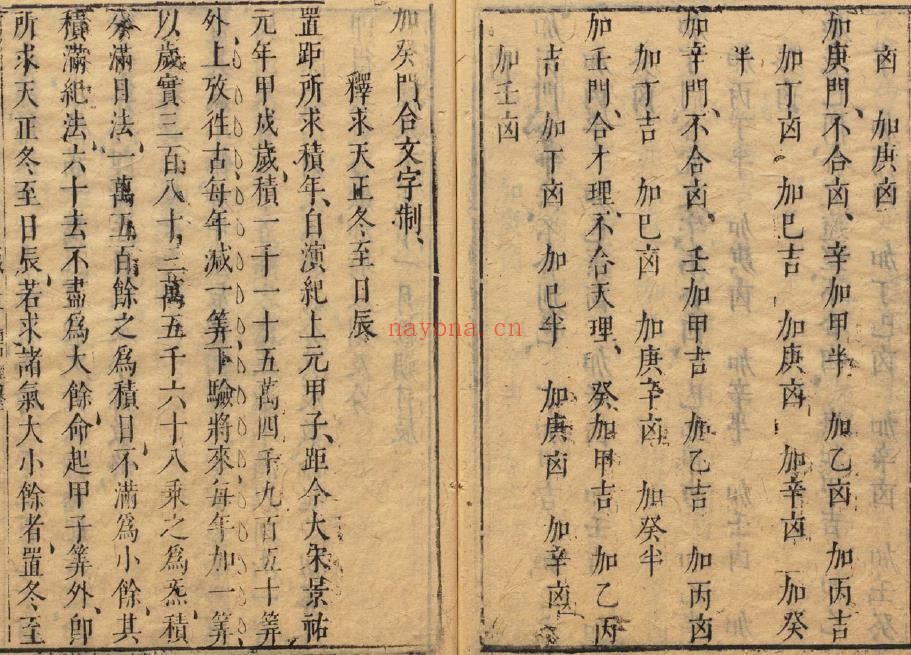 卤　加庚卤
加庚門、不合卤、辛加甲半　加乙卤　加丙吉
加丁卤　加巳吉　加庚卤　加辛卤　加癸
半
加辛門、不合卤、壬加甲吉　加乙吉　加丙卤
加丁吉　加巳卤　加庚辛卤　加癸半
加壬門、合才理、不合天理、癸加甲吉　加乙丙
吉　加丁卤　加巳半　加庚卤　加辛卤
加壬卤
加癸門、合文字制、
釋求天正冬至日辰
置距所求積年、自演紀上元甲子、距今大宋景祐
元年甲戍歲積一千一十五萬四千九百五十算
外、上攷徃古每年減一算、下驗將來每年加一算
以歲實三百八十三萬五千六十八乘之為炁積
分滿日法一萬五百餘之為積日、不滿為小餘、其
積滿紀法六十去不盡為大餘命起甲子算外、卽
所求天正冬至日辰、若求諸氣大小餘者置冬至
nayona.cn